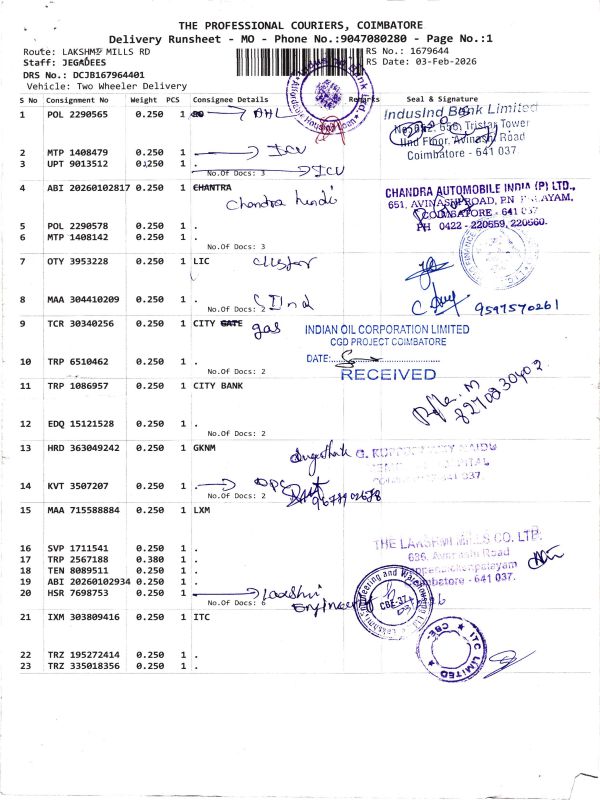 THE PROFESSIONAL COURIERS, COIMBATORE
Delivery Runsheet - MO - Phone No.:9047080280 - Page No.:1
Route: LAKSHMI MILLS RD
RS No.: 1679644
Staff: JEGADEES
RS Date: 03-Feb-2026
DRS No.: DCJB167964401
Vehicle: Two Wheeler Delivery
S No Consignment No Weight PCS Consignee Details Remarks Seal & Signature
1 POL 2290565 0.250 1 DHL
IndusInd Bank Limited
Tristar Tower
IInd Floor, Avinashi Road
Coimbatore - 641 037
2 MTP 1408479 0.250 1 . ICU
3 UPT 9013512 0.250 1 ICU
No.Of Docs: 3
4 ABI 20260102817 0.250 1 CHANTRA
Chandra
CHANDRA AUTOMOBILE INDIA (P) LTD.,
651, AVINASHI ROAD, P.N. PALAYAM,
COIMBATORE - 641 037
PH 0422 - 220559, 220560.
5 POL 2290578 0.250 1 .
6 MTP 1408142 0.250 1 .
No.Of Docs: 3
7 OTY 3953228 0.250 1 LIC
8 MAA 304410209 0.250 1 .
No.Of Docs: 2
9597570261
9 TCR 30340256 0.250 1 CITY GATE gas
INDIAN OIL CORPORATION LIMITED
CGD PROJECT COIMBATORE
DATE:
RECEIVED
10 TRP 6510462 0.250 1 .
No.Of Docs: 2
11 TRP 1086957 0.250 1 CITY BANK
8270830402
12 EDQ 15121528 0.250 1 .
No.Of Docs: 2
13 HRD 363049242 0.250 1 GKNM
14 KVT 3507207 0.250 1 .
No.Of Docs: 2
15 MAA 715588884 0.250 1 LXM
THE LAKSHMI MILLS CO. LTD.
636, Avinashi Road
16 SVP 1711541 0.250 1 .
17 TRP 2567188 0.380 1 .
18 TEN 8089511 0.250 1 .
19 ABI 20260102934 0.250 1 .
20 HSR 7698753 0.250 1 . Lakshmi
No.Of Docs: 6
Engineering
CBE-37
21 IXM 303809416 0.250 1 ITC
ITC LIMITED
CBE-
22 TRZ 195272414 0.250 1 .
23 TRZ 335018356 0.250 1 .